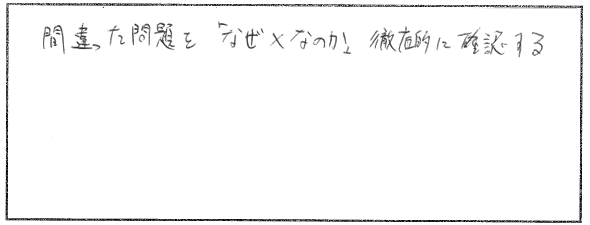 間違った問題を「なぜ×なのか」徹底的に確認する